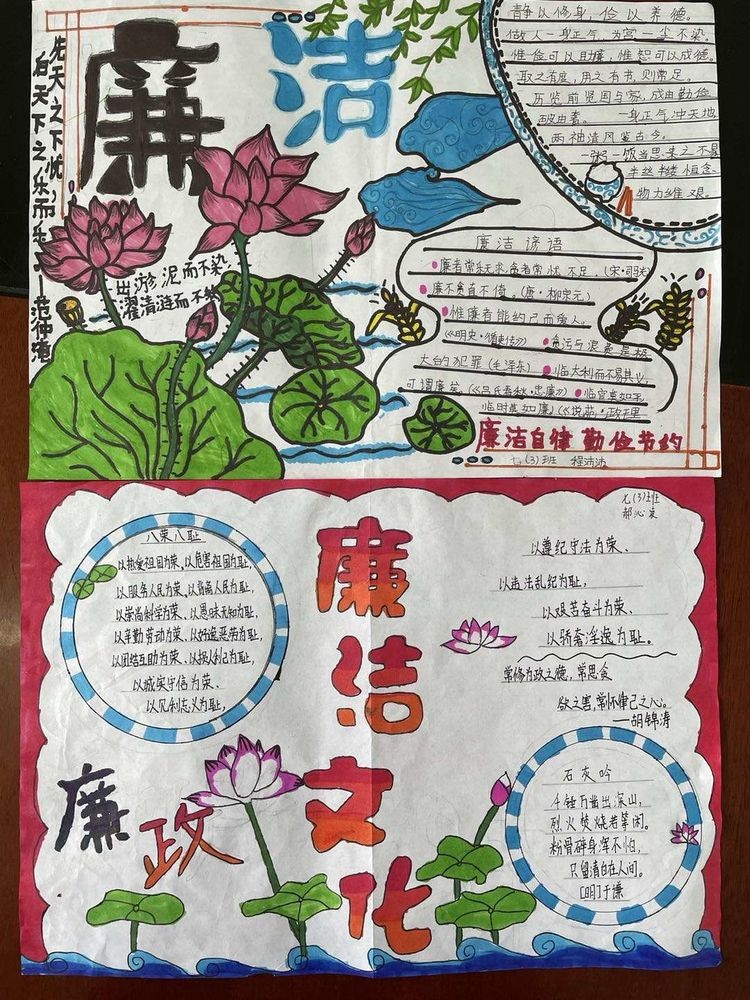 先天之下忧，
后天下之乐而乐
——范仲淹
廉
洁
出淤泥而不染
濯清涟而不
静以修身，俭以养德。
做人一身正气，为官一尘不染
惟俭可以助廉，惟恕可以成德。
取之有度，用之有节，则常足。
历览前贤国与家，成由勤俭
破由奢。 一身正气冲天地
两袖清风鉴古今。
一粥一饭当思来之不易
半丝半缕恒念
物力维艰。
廉洁谚语
廉者常乐无求，贪者常忧不足。(宋·司马光)
廉不贪直不倚。(唐·柳宗元)
惟廉者能约己而爱人。
(《明史·循吏传》) 贪污与浪费是极
大的犯罪(毛泽东) 临大利而不易其义，
可谓廉矣(《吕氏春秋·忠廉》) 临官莫如平
临财莫如廉(《说苑·政理
廉洁自律 勤俭节约
七(3)班 程沛沛
七(3)班
郝沁
八荣八耻
以热爱祖国为荣、以危害祖国为耻，
以服务人民为荣、以背离人民为耻，
以崇尚科学为荣、以愚昧无知为耻，
以辛勤劳动为荣、以好逸恶劳为耻，
以团结互助为荣、以损人利己为耻，
以诚实守信为荣、
以见利忘义为耻，
廉洁文化
以遵纪守法为荣、
以违法乱纪为耻，
以艰苦奋斗为荣、
以骄奢淫逸为耻。
常修为政之德，常思贪
欲之害，常怀律己之心。
——胡锦涛
廉政
石灰吟
千锤万凿出深山，
烈火焚烧若等闲。
粉骨碎身浑不怕，
只留清白在人间。
[明]于谦